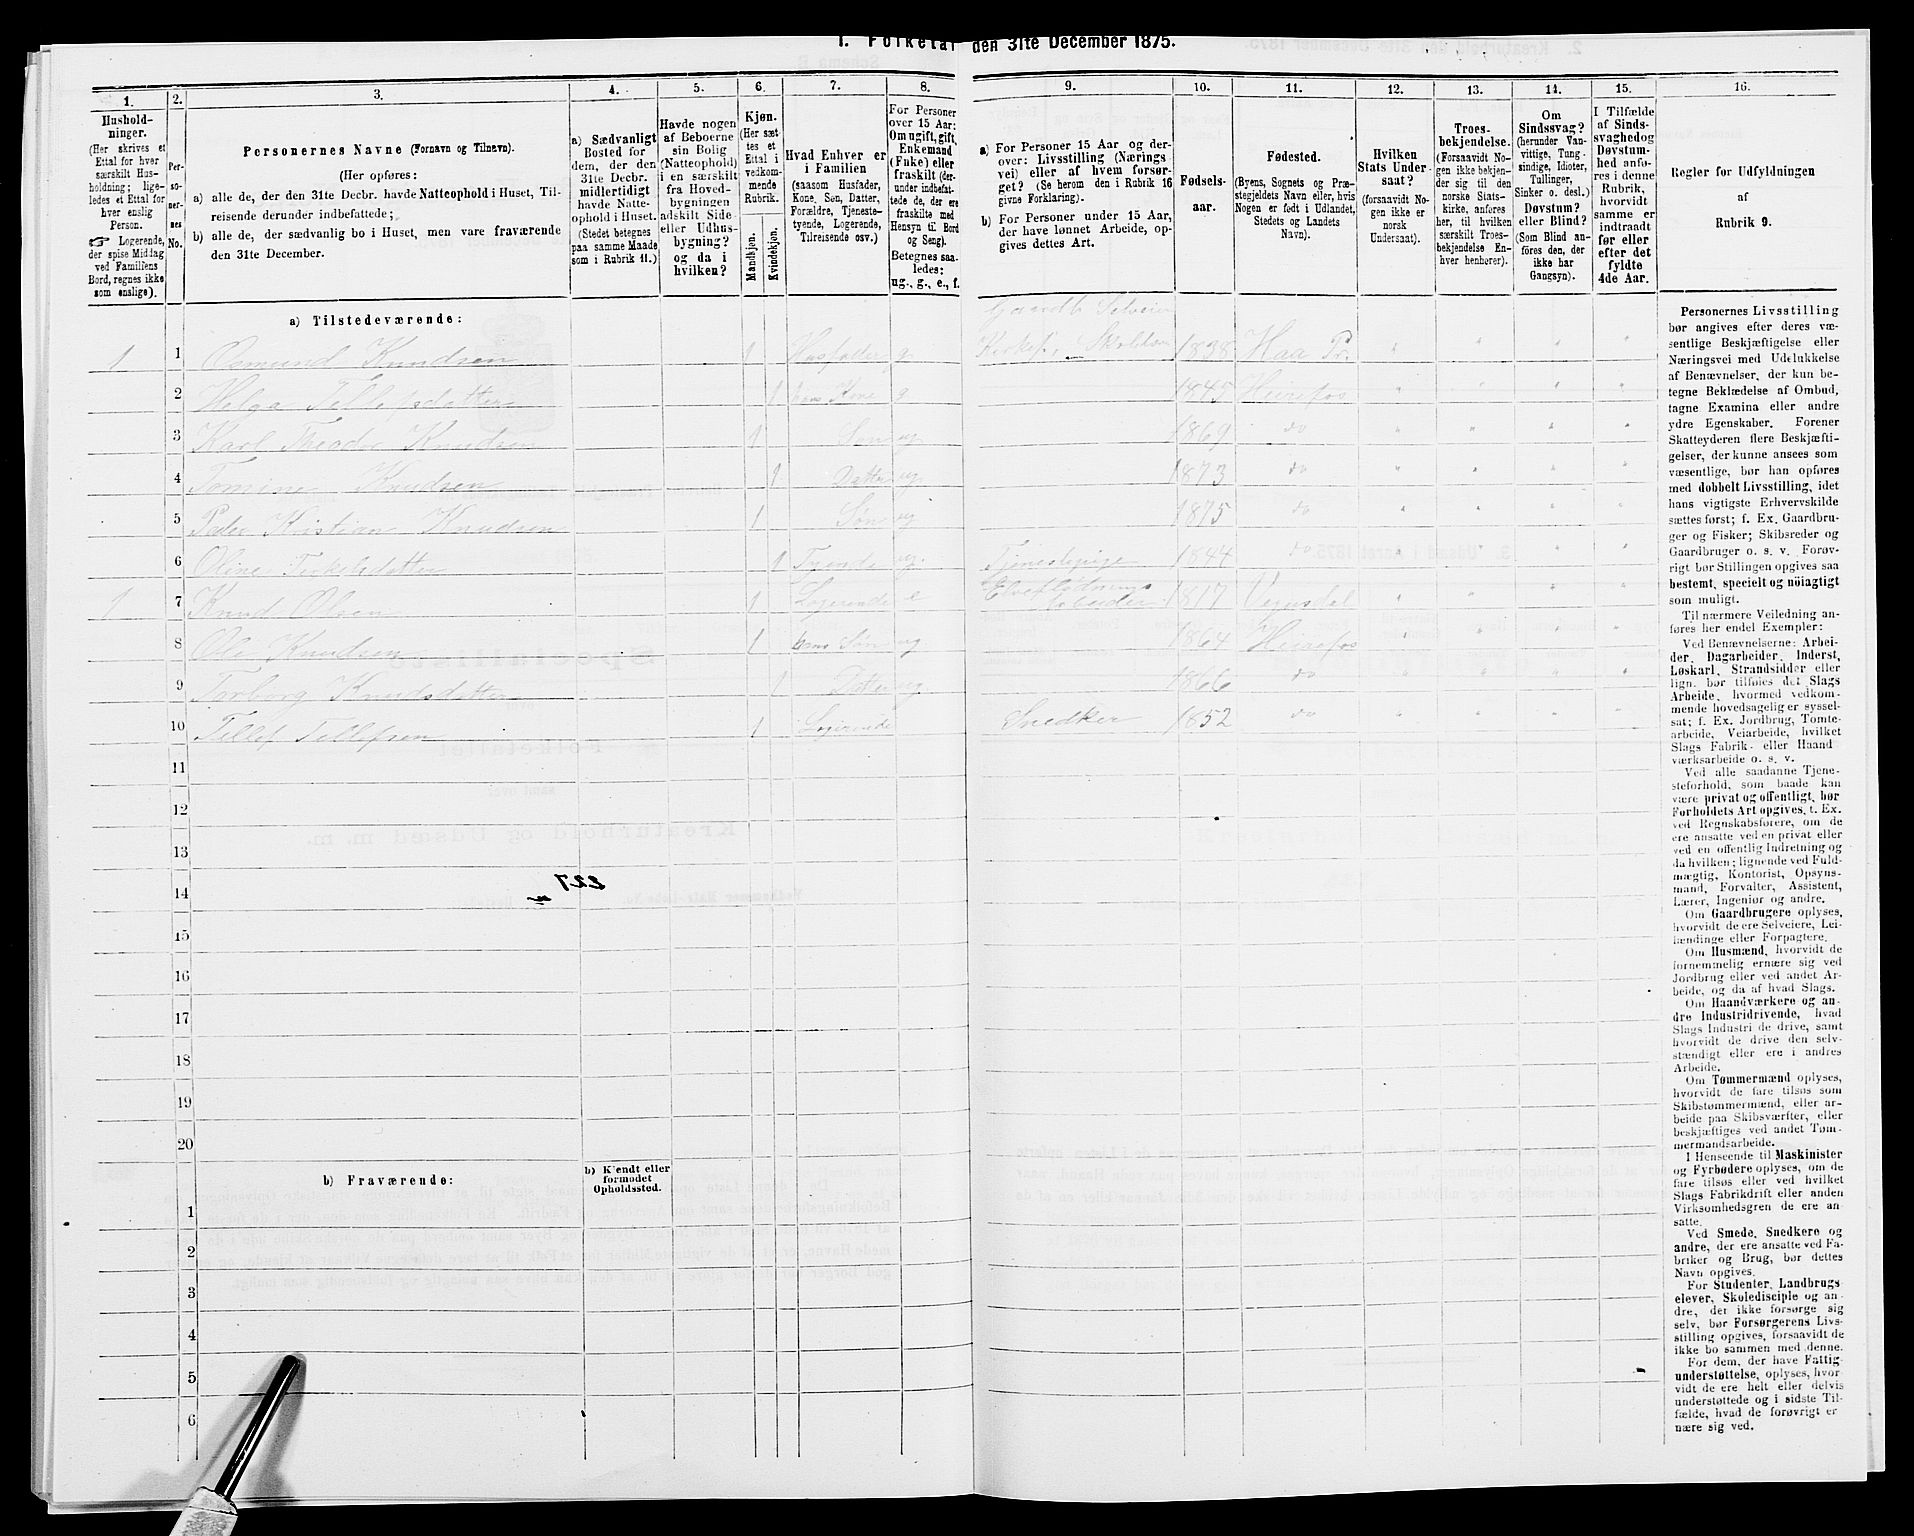 1. Folketal den 31te December 1875.
1.
Hushold-
ninger.
(Her skrives et
Ettal for hver
særskilt Hus-
holdning; lige-
ledes et Ettal for
hver enslig
Person.
Logerende,
der spise Middag
ved Familiens
Bord, regnes ikke
som enslige).
2.
Per-
so-
ner-
nes
No.
3.
Personernes Navne (Fornavn og Tilnavn).
(Her opføres:
a) alle de, der den 31te Decbr. havde Natteophold i Huset, Til-
reisende derunder indbefattede;
b) alle de, der sædvanlig bo i Huset, men vare fraværende
den 31te December.
4.
a) Sædvanligt
Bosted for
dem, der den
31te Decbr.
midlertidigt
havde Natte-
ophold i Huset.
(Stedet betegnes
paa samme Maade
som i Rubrik 11.)
5.
Havde nogen
af Beboerne
sin Bolig
(Natteophold)
i en særskilt
fra Hoved-
bygningen
adskilt Side-
eller Udhus-
bygning?
og da i
hvilken?
6.
Kjøn.
(Her sæt-
tes et
Ettal i
vedkom-
mende
Rubrik.
Mandkjøn.
Kvindekjøn.
7.
Hvad Enhver er
i Familien
(saasom Husfader,
Kone, Søn, Datter,
Forældre, Tjeneste-
tyende, Logerende,
Tilreisende osv.)
8.
For Personer
over 15 Aar:
Om ugift, gift,
Enkemand
(Enke) eller
fraskilt (der-
under indbefat-
tede de, der ere
fraskilte med
Hensyn til Bord
og Seng).
Betegnes saa-
ledes:
ug., g., e., f.
9.
a) For Personer 15 Aar og der-
over: Livsstilling (Nærings-
vei) eller af hvem forsør-
get? (Se herom den i Rubrik 16
givne Forklaring).
b) For Personer under 15 Aar,
der have lønnet Arbeide, op-
gives dettes Art.
10.
Fødsels-
aar.
11.
Fødested.
(Byens, Sognets og Præ-
stegjeldets Navn eller, hvis
Nogen er født i Udlandet,
Stedets og Landets
Navn).
12.
Hvilken
Stats Under-
saat?
(forsaavidt No-
gen ikke er
norsk
Undersaat).
13.
Troes-
bekjendelse.
(Forsaavidt No-
gen ikke bekjen-
der sig til den
norske Stats-
kirke, anføres
her, til hvilken
særskilt Troes-
bekjendelse En-
hver henhører).
14.
Om
Sindssvag?
(herunder Van-
vittige, Tung-
sindige, Idioter,
Tullinger,
Sinker o. desl.)
Døvstum?
eller Blind?
(Som Blind an-
føres den, der
ikke har
Gangsyn).
15.
I Tilfælde
af Sinds-
svaghed og
Døvstum-
hed anfø-
res i denne
Rubrik,
hvorvidt
samme er
indtraadt
før eller
efter det
fyldte
4de Aar.
16.
Regler for Udfyldningen
af
Rubrik 9.
a) Tilstedeværende:
Gaardb Selveier
1 1 Osmund Knudsen 1 Husfader g Kirkes. Skolelær 1838 Haa Pr. " " " "
2 Helga Tellefsdatter 1 hans Kone g 1845 Heirefos " " " "
3 Karl Theodor Knudsen 1 Søn ug 1869 do " " " "
4 Tomine Knudsen 1 Datter ug. 1873 do " " " "
5 Peder Kristian Knudsen 1 Søn ug 1875 do " " " "
6 Oline Terkelsdatter 1 Tyende ug. Tjenestepige 1844 do " " " "
1 7 Knud Olsen 1 Logerende e Elveflødnings arbeider 1817 Vegusdal " " " "
8 Ole Knudsen 1 hans Søn ug 1864 Heirefos " " " "
9 Torborg Knudsdatter 1 Dotter ug 1866 do " " " "
10 Tellef Tellefsen 1 Logerende Snedker 1852 do " " " "
11
12
13
14
15
16
17
18
19
20
b) Fraværende:
b) Kjendt eller
formodet
Opholdssted.
1
2
3
4
5
6
Personernes Livsstilling
bør angives efter deres væ-
sentlige Beskjæftigelse eller
Næringsvei med Udelukkelse
af Benævnelser, der kun be-
tegne Beklædelse af Ombud,
tagne Examina eller andre
ydre Egenskaber. Forener
Skatteyderen flere Beskjæfti-
gelser, der kunne ansees som
væsentlige, bør han opføres
med dobbelt Livsstilling, idet
hans vigtigste Erhvervskilde
sættes først; f. Ex. Gaardbru-
ger og Fisker; Skibsreder og
Gaardbruger o. s. v. Forøv-
rigt bør Stillingen opgives saa
bestemt, specielt og nöiagtigt
som muligt.
Til nærmere Veiledning an-
føres her endel Exempler:
Ved Benævnelserne: Arbei-
der, Dagarbeider, Inderst,
Løskarl, Strandsidder eller
lign. bør tilføies det Slags
Arbeide, hvormed vedkom-
mende hovedsagelig er syssel-
sat; f. Ex. Jordbrug, Tomte-
arbeide, Veiarbeide, hvilket
Slags Fabrik- eller Haand
værksarbeide o. s. v.
Ved alle saadanne Tjene-
steforhold, som baade kan
være privat og offentligt, bør
Forholdets Art opgives, t. Ex.
ved Regnskabsførere, om de
ere ansatte ved en privat eller
ved en offentlig Indretning og
da hvilken; lignende ved Fuld-
mægtig, Kontorist, Opsyns-
mand, Forvalter, Assistent,
Lærer, Ingeniør og andre.
Om Gaardbrugere oplyses,
hvorvidt de ere Selveiere, Lei-
lændinge eller Forpagtere.
Om Husmænd, hvorvidt de
fornemmelig ernære sig ved
Jordbrug eller ved andet Ar-
beide, og da af hvad Slags.
Om Haandværkere og an-
dre Industridrivende, hvad
Slags Industri de drive, samt
hvorvidt de drive den selv-
stændigt eller ere i andres
Arbeide.
Om Tømmermænd oplyses,
hvorvidt de fare tilsøs som
Skibstømmermænd, eller ar-
beide paa Skibsværfter, eller
beskjæftiges ved andet Tøm-
mermandsarbeide.
I Henseende til Maskinister
og Fyrbødere oplyses, om de
fare tilsøs eller ved hvilket
Slags Fabrikdrift eller anden
Virksomhedsgren de ere an-
satte.
Ved Smede, Snedkere og
andre, der ere ansatte ved Fa-
briker og Brug, bør dettes
Navn opgives.
For Studenter, Landbrugs
elever, Skoledisciple og an
dre, der ikke forsørge sig
selv, bør Forsørgerens Livs-
stilling opgives, forsaavidt de
ikke bo sammen med denne.
For dem, der have Fattig-
understøttelse, oplyses, hvor-
vidt de ere helt eller delvis
understøttede og i sidste Til-
fælde, hvad de forøvrigt er
nære sig ved.